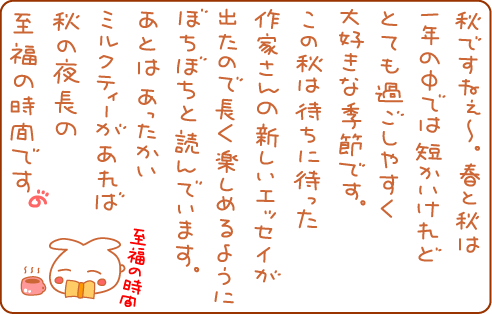 秋ですねぇ~。春と秋は
一年の中では短かいけれど
とても過ごしやすく
大好きな季節です。
この秋は待ちに待った
作家さんの新しいエッセイが
出たので長く楽しめるように
ぼちぼちと読んでいます。
あとはあったかい
ミルクティーがあれば
秋の夜長の
至福の時間です。
至福の時間